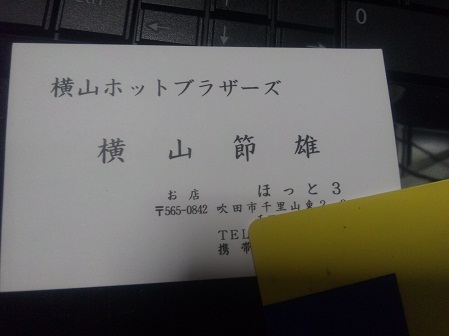 横山ホットブラザーズ
横山節雄
お店 ほっと3
〒565-0842 吹田市千里山東2
TEL
携帯
0